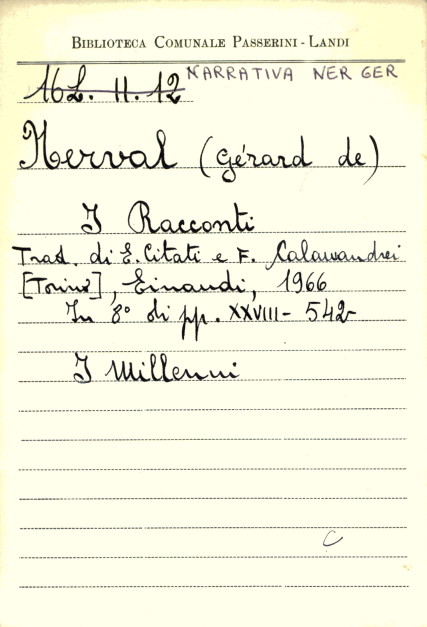 BIBLIOTECA COMUNALE PASSERINI - LANDI
16L. II. 12 NARRATIVA NER GER
Nerval (Gérard de)
I Racconti
Trad. di E. Citati e F. Calamandrei
[Torino], Einaudi, 1966
In 8° di pp. XXVIII - 542
I Millenni
C